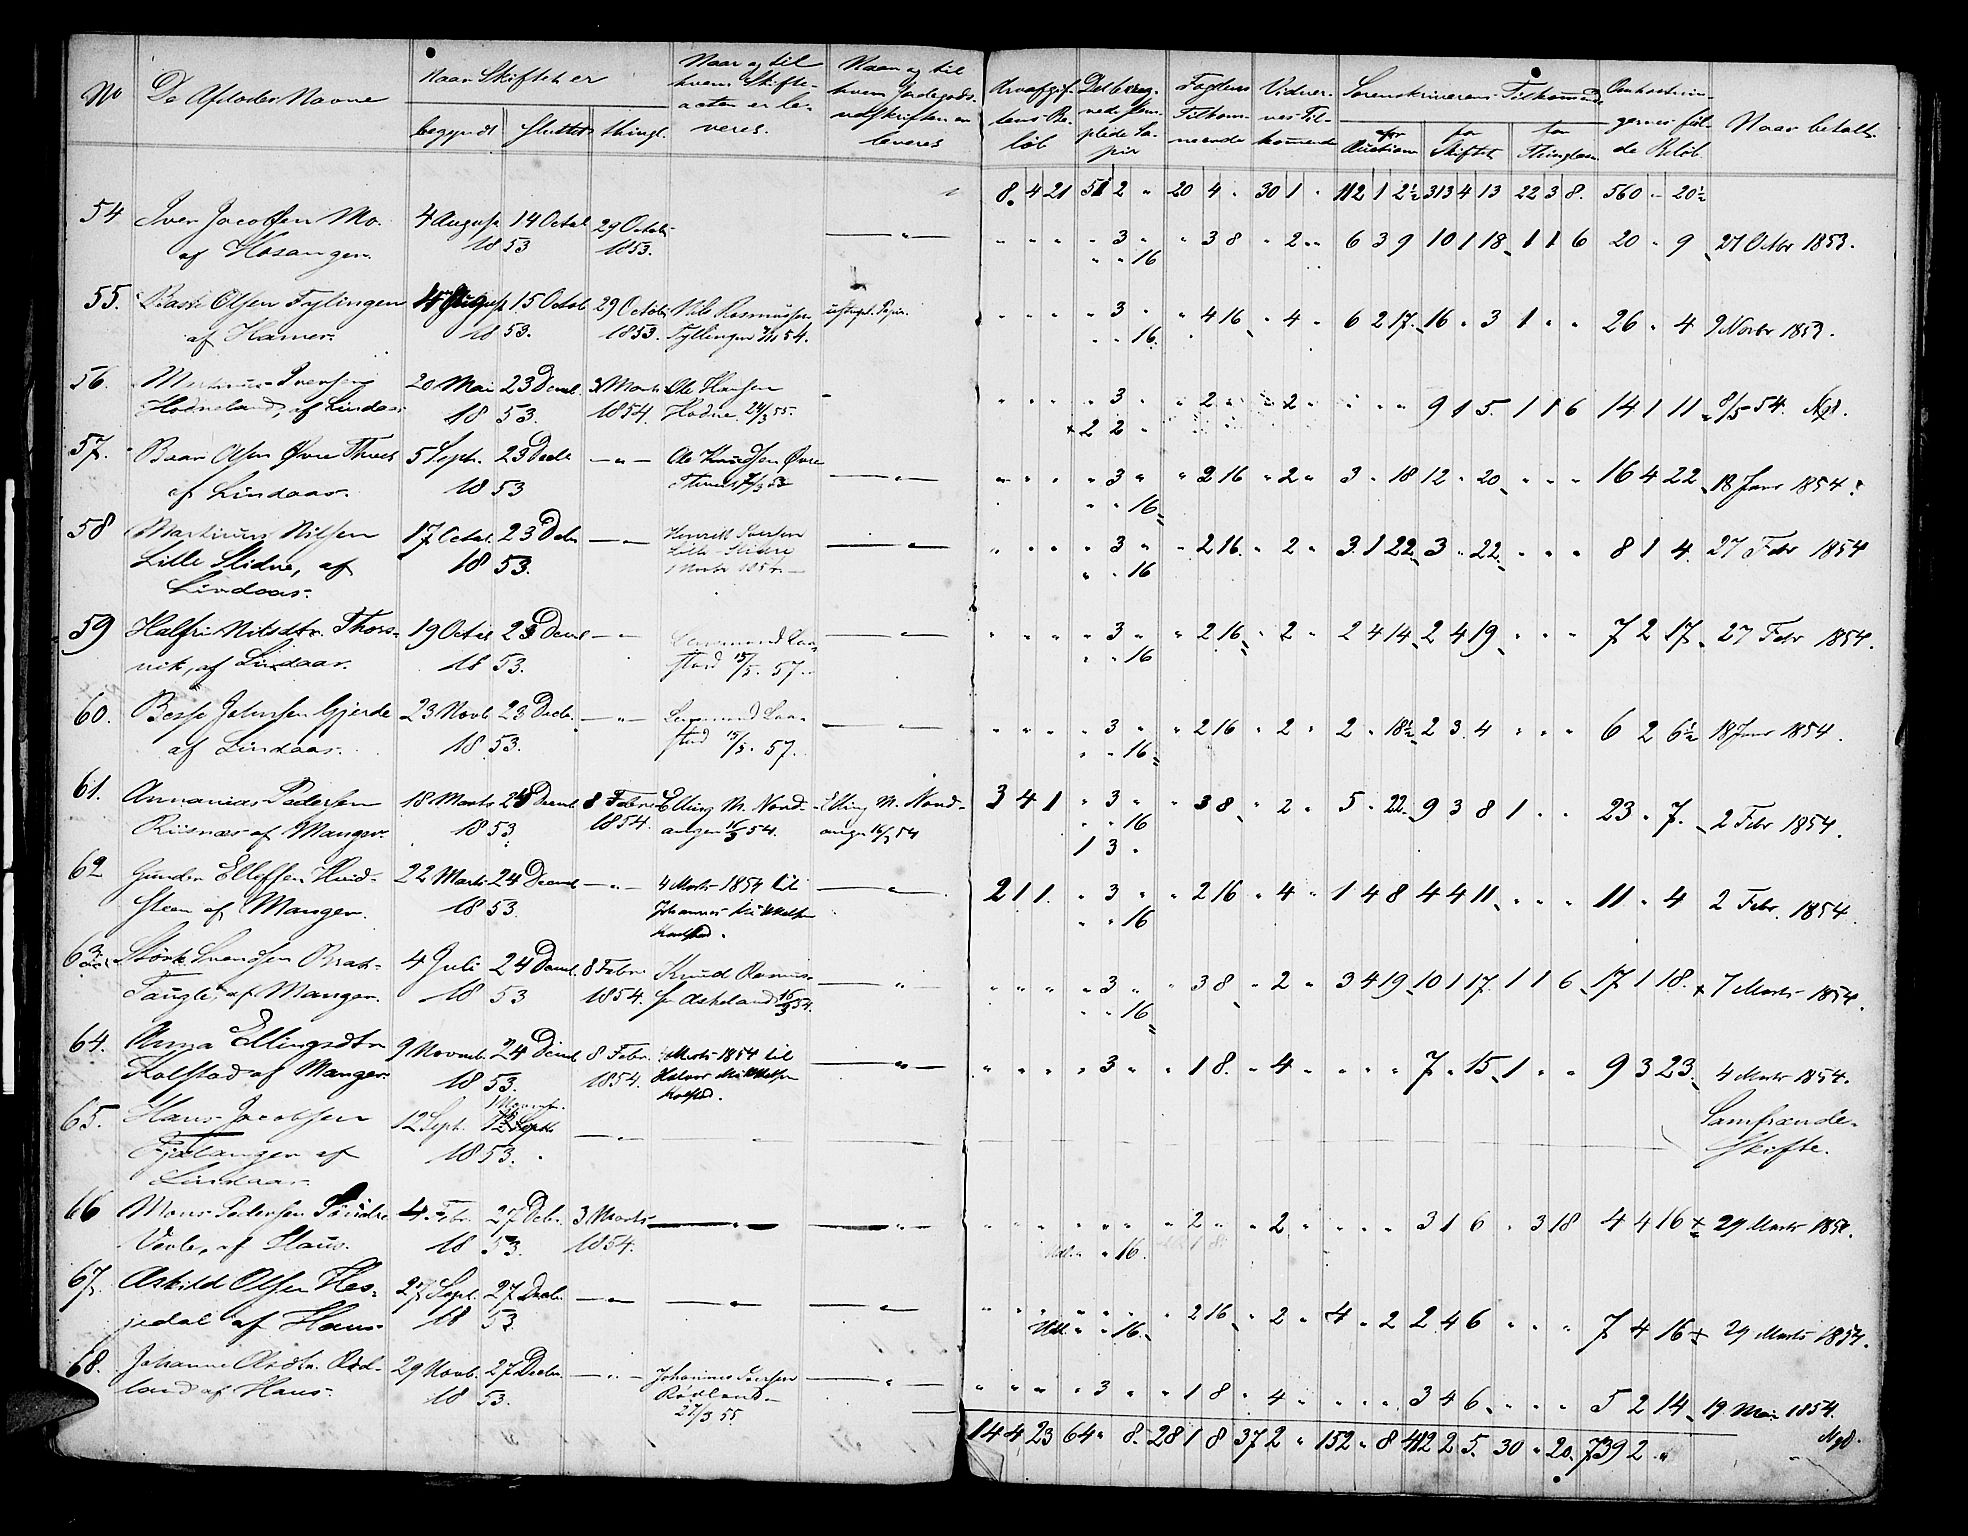 No De Afdødes Navne Naar Skiftet er begyndt sluttet thingl.
Naar og til hvem Skifteacten er leveres.
Naar og til hvem Jordegodsudskriften er leveres
Arveafgiftens Beløb
Det bereg. ved stemplede Papir
Fogdens Tilkommende
Vidnernes Tilkommende
Sorenskriverens Tilkommende
for Auction for Skiftet for Thinglæsn.
Omkostningernes fulde Beløb
Naar betalt.
8. 4 21 51 2 " 20 4 " 30 1 " 112 1 2½ 313 4 13 22 3 8. 560 " 20½
54 Iver Jacobsen Mo 4 August 14 Octob 29 Octob. — " — " " " " 3 " " 3 8 " 2 " 6 3 9 10 1 18 1 1 6 20 " 9 27 Octbr 1853.
af Hosanger. 1853 1853. " " 16
55. Olsen Fyllingen 4 August 15 Octob 29 Octob. Nils Rasmussen " " " " 3 " " 4 16 " 4 " 6 2 17 16 " 3 1 " " 26 " 4 9 Novbr 1853.
af Hamer. 1853. 1853. Fyllingen 54. " " 16
56. Martinus Iversen 20 Mai 23 Decel. 3 Marts Ole Hansen " " " " 3 " " 2 " " 2 " " " " 9 1 5. 1 1 6 14 1 11 8/5 54.
Hodneland, af Lindaas 1853. 1854. Hodne 24/3 55. 2 2 "
57. Olsen Øvre 5 Sept. 23 Decbr — " — Ole Knudsen Øvre — " — " " " " 3 " " 2 16 " 2 " 3 " 18 12 " 20 " " " 16 4 22 18 Janr 1854.
af Lindaas. 1853 " " 16
58 Martinus Nilsen 17 Octbr. 23 Decbr — " — Henrik Iversen — " — " " " " 3 " " 2 16. " 2 " 3. 1 22 3 " 22 " " " 8 1 4. 27 Febr 1854
Lille Slidne, af 1853. Lille Slidre " " 16
Lindaas.
59 Nilsdtr. Thors- 19 Octbr 23 Decbr — " — — " — " " " " 3 " " 2 16 " 2 " 2 4 14 2 4 19 " " " 7 2 17. 27 Febr 1854.
vik, af Lindaas. 1853. 15/5. 57. " " 16
60. Johnsen Gjerde 23 Novb. 23 Decbr. — " — — " — " " " " 3 " " 2 16 " 2 " 2 " 18½ 2 3 4 " " " 6 2 6½ 18 Janr 1854.
af Lindaas. 1853. 15/5. 57. " " 16
61. Annanias Pedersen 18 Marts 24 Decbr 8 Febr. Elling M. Nord- Elling M. Nord- 3 4 1 " 3 " " 3 8 " 2 " 5 " 22 9 3 8 1 " " 23 " 7. 2 Febr 1854.
Riisnæs af Manger. 1853. 1854. anger 16/3 54. anger 16/3 54 " " 16
1 3 "
62 Gunder Ellefsen Hvid- 22 Marts 24 Decbr — " — 4 Marts 1854 til — " — 2 1 1. " 3 " " 2 16 " 4 " 1 4 8 4 4 11 " " " 11 " 4 2 Febr. 1854.
steen af Manger. 1853. Johannes Mikkelsen " " 16
Kolstad.
63. Svendsen 4 Juli 24 Decbr. 8 Febr. Knud Rasmus- — " — " " " " 3 " " 3 8 " 2 " 3 4 19 10 1 17. 1 1 6 17 1 18. 7 Marts 1854.
af Manger. 1853 1854. sen Askeland 16/3 54. " " 16
64. Anna Ellingsdtr 9 Novmb. 24 Decbr 8 Febr. 4 Marts 1854 til — " — " " " " 3 " " 1 8. " 4 " " " " 7 " 15 1 " " 9 3 23 4 Marts 1854.
Kolstad af Manger. 1853. 1854. Halvor Mikkelsen
Kolstad.
65. Hans Jacobsen 12 Sept. — " — Samfrænde-
Fjælanger af 1853. Skifte.
Lindaas.
66 Mons Pedersen 4 Febr. 27 Decbr. 3 Marts — " — — " — " " " " " " " 2 " " 2 " " " " 3 1 6 " 3 18 4 4 16 29 Marts 1854.
af Haus. 1853. 1854. " " 16
67. Askild Olsen Hes- 27 Sept. 27 Decbr. — " — — " — — " — " " " " " " " 2 16 " 2 " 4 " 2 2 4 6 " " " 7 4 16 29 Marts 1854.
jedal af Haus 1853 " " 16
68. Johanne 29 Novb. 27 Decbr. — " — Johannes Iversen — " — " " " " 3 " " 1 8 " 4 " " " " 3 4 6 " " " 5 2 14 19. Mai 1854.
land af Haus. 1853. Rødland
27/3 55
14 4 23 64 " 8. 28 1 8 37 2 " 152 " 8 412 2 5. 30 " 20. 739 2 "